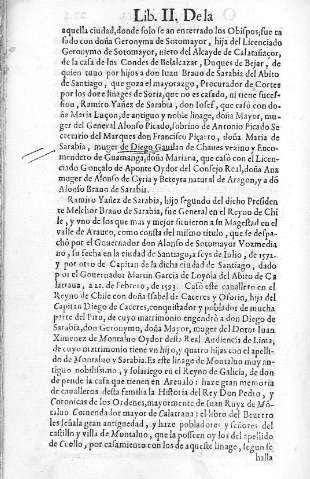 Lib. II. De la
aquella ciudad, donde solo se an enterrado los Obispos, fue ca
sado con doña Geronyma de Sotomayor, hija del Licenciado
Geronymo de Sotomayor, nieto del Alcayde de Calatañaçor,
de la casa de los Condes de Belalcazar, Duques de Bejar, de
quien tuuo por hijos a don Iuan Brauo de Sarabia del Abito
de Santiago, que goza el mayorazgo, Procurador de Cortes
por los doze linages de Soria, que no es casado, ni tiene sucef-
sion, Ramiro Yañez de Sarabia, don Iosef, que casó con do
ña Maria Luçon, de antiguo y noble linage, doña Mayor, mu-
ger del General Alonso Picado, sobrino de Antonio Picado Se
cretario del Marques don Francisco Piçarro, doña Maria de
Sarabia, muger de Diego Gauilan de Chaues vezino y Enco-
mendero de Guamanga, doña Mariana, que casó con el Licen-
ciado Gonçalo de Aponte Oydor del Consejo Real, doña Ana
muger de Alonso de Cyria y Beteyra natural de Aragon, y a dō
Alonso Brauo de Sarabia.
Ramiro Yañez de Sarabia, hijo segundo del dicho Presiden
te Melchor Brauo de Sarabia, fue General en el Reyno de Chi
le, y vno de los que mas y mejor siruieron a su Magestad en el
valle de Arauco, como consta del mismo titulo, que se despa-
chó por el Gouernador don Alonso de Sotomayor Vozmedia
no, su fecha en la ciudad de Santiago, a seys de Iulio, de 1572.
y por otro de Capitan de la dicha ciudad de Santiago, dado
por el Gouernador Martin Garcia de Loyola del Abito de Ca
latraua, a 22. de Febrero, de 1593. Casó este cauallero en el
Reyno de Chile con doña Isabel de Caceres y Osorio, hija del
Capitan Diego de Caceres, conquistador y poblador de mucha
parte del Piru, de cuyo matrimonio engendró a don Diego de
Sarabia, don Geronymo, doña Mayor, muger del Dotor Iuan
Ximenez de Montaluo Oydor desta Real Audiencia de Lima,
de cuyo matrimonio tiene vn hijo, y quatro hijas con el apelli-
do de Montaluo y Sarabia. Es este linage de Montaluo muy an-
tiguo nobilissimo, y solariego en el Reyno de Galicia, de don
de pende la casa que tienen en Areualo: haze gran memoria
de caualleros desta familia la Historia del Rey Don Pedro, y
Coronicas de los Ordenes, mayormente de Iuan Ruyz de Mō
taluo Comendador mayor de Calatraua: el libro del Bezerro
les señala gran antiguedad, y haze pobladores y señores del
castillo y villa de Montaluo, que la posseen oy los del apellido
de Coello, por casamiento con los de aqueste linage, segun se
halla